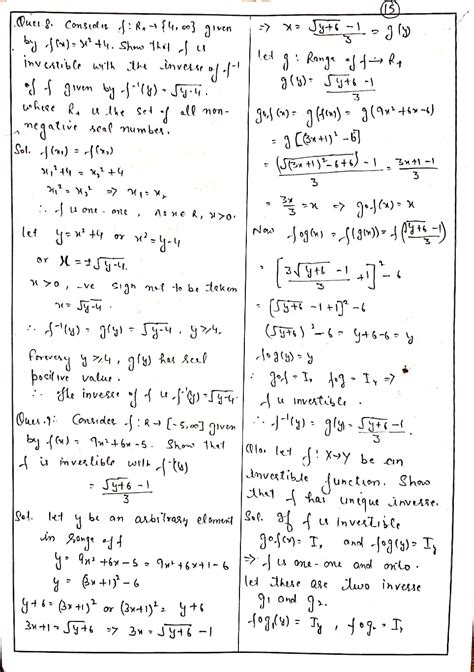 (15)
Ques 8. Consider f: R₊→[4,∞] given
by f(x) = x²+4. Show that f is
invertible with the inverse of f⁻¹
of f given by f⁻¹(y) = √y-4.
where R₊ is the set of all non-
negative real number.
Sol. f(x₁) = f(x₂)
x₁²+4 = x₂²+4
x₁² = x₂² ⇒ x₁ = x₂
∴ f is one-one, As x∈R, x>0.
let y = x²+4 or x² = y-4
or x = ±√y-4.
x>0, -ve sign not to be taken
x = √y-4.
∴ f⁻¹(y) = g(y) = √y-4, y⩾4.
Forevery y⩾4, g(y) has real
positive value.
∴ The inverse of f is f⁻¹(y) = √y-4.
Ques.9: Consider f: R→[-5,∞] given
by f(x) = 9x²+6x-5. Show that
f is invertible with f⁻¹(y)
= √y+6 -1 / 3
Sol. let y be an arbitrary element
in range of f
y = 9x²+6x-5 = 9x²+6x+1-6
y = (3x+1)²-6
y+6 = (3x+1)² or (3x+1)² = y+6
3x+1 = √y+6 ⇒ 3x = √y+6 -1
⇒ x = √y+6 -1 / 3 = g(y)
let g: Range of f → R₊
g(y) = √y+6 -1 / 3
gof(x) = g(f(x)) = g(9x²+6x-6)
= g[(3x+1)²-6]
= (√(3x+1)²-6+6) -1 / 3 = 3x+1-1 / 3
= 3x/3 = x ⇒ gof(x) = x
Now fog(x) = f(g(x)) = f(√y+6 -1 / 3)
= [3 √y+6 -1 / 3 +1]² -6
= [√y+6 -1+1]² -6
(√y+6)² -6 = y+6-6 = y
fog(y) = y
∴ gof = I, fog = Iᵧ ⇒
f is invertible.
∴ f⁻¹(y) = g(y) = √y+6 -1 / 3
Q10. let f: X→Y be an
invertible function. Show
that f has unique inverse.
Sol. If f is invertible
gof(x) = I, and fog(y) = Iᵧ
⇒ f is one-one and onto.
let there are two inverse
g₁ and g₂.
fog₁(y) = Iᵧ, fog₂ = Iᵧ